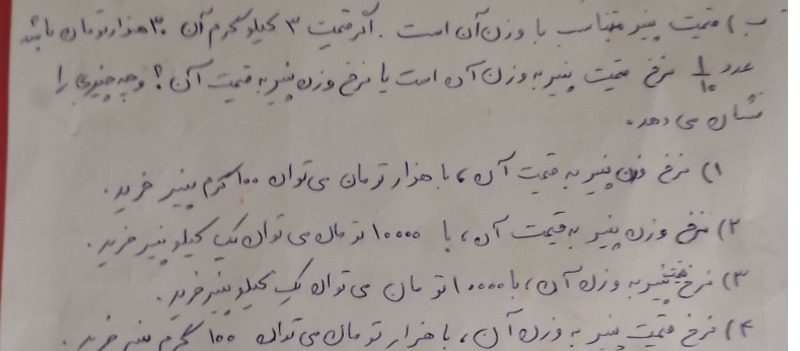 ب) قیمت پنیر متناسب با وزن آن است. اگر قیمت ۳ کیلوگرم آن ۳۰ هزار تومان باشد
عدد ۱/۱۰ نرخ قیمت پنیر به وزن آن است یا نرخ وزن پنیر به قیمت آن؟ و چه چیزی را
نشان می دهد.
۱) نرخ وزن پنیر به قیمت آن، با هزار تومان می توان ۱۰۰ گرم پنیر خرید.
۲) نرخ وزن پنیر به قیمت آن، با ۱۰۰۰۰ تومان می توان یک کیلو پنیر خرید.
۳) نرخ قیمت پنیر به وزن آن، با ۱۰۰۰۰ تومان می توان یک کیلو پنیر خرید.
۴) نرخ قیمت پنیر به وزن آن، با هزار تومان می توان ۱۰۰ گرم پنیر خرید.